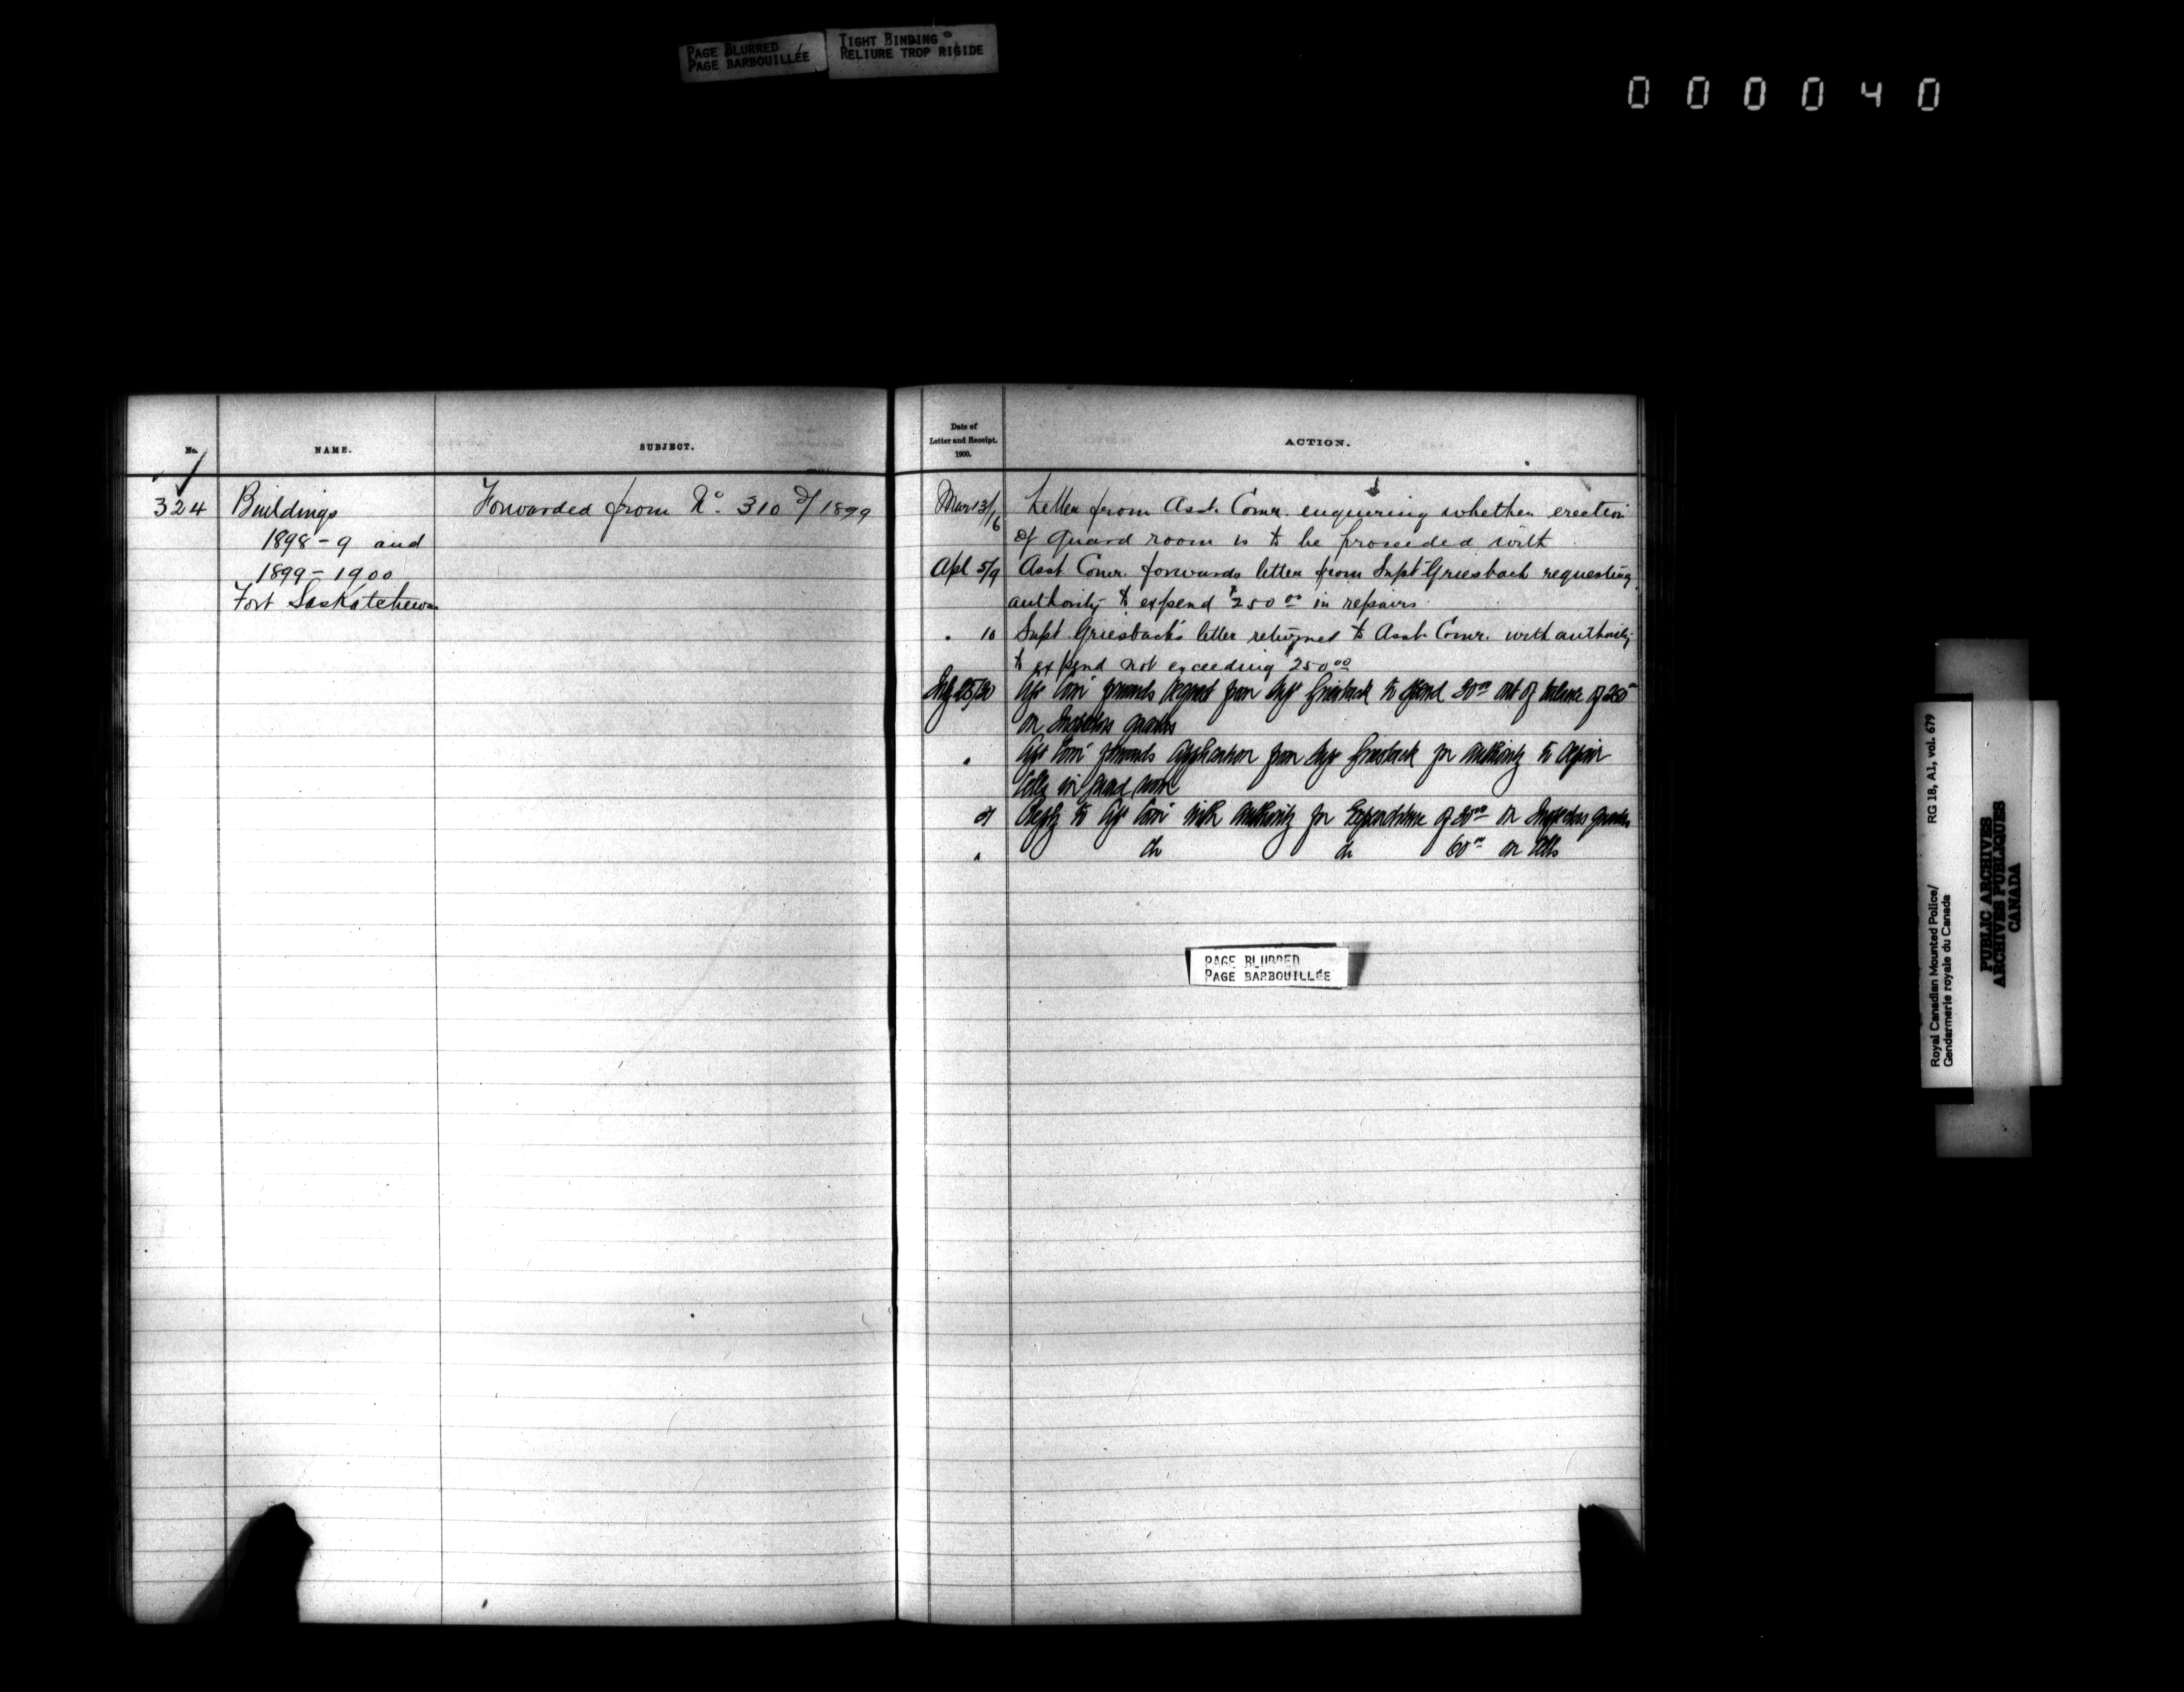 PAGE BLURRED
PAGE BARBOUILLÉE
TIGHT BINDING
RELIURE TROP RIGIDE
000040
No.
NAME.
SUBJECT.
324
Buildings
1898-9 and
1899-1900
Fort Saskatchewan
Forwarded from No. 310 of 1899
Date of
Letter and Receipt.
1900.
ACTION.
Mar 13/16 Letter from Asst. Comr. enquiring whether erection
of guard room is to be proceeded with
Apl 5/9 Asst Comr. forwards letter from Supt Griesbach requesting
authority to expend $250.00 in repairs
" 10 Supt. Griesbach's letter returned to Asst. Comr. with authority
to expend not exceeding $250.00
25/30 Asst Comr forwards request from Supt Griesbach to spend 00 out of balance of 250
on Inspectors quarters
" Asst Comr forwards application from Supt Griesbach for authority to repair
Cells in guard room
31 Reply to Asst Comr with authority for Expenditure of 00 on Inspectors quarters
" do do 60.00 on Cells
PAGE BLURRED
PAGE BARBOUILLÉE
Royal Canadian Mounted Police/
Gendarmerie royale du Canada
RG 18, A1, vol. 679
PUBLIC ARCHIVES
ARCHIVES PUBLIQUES
CANADA